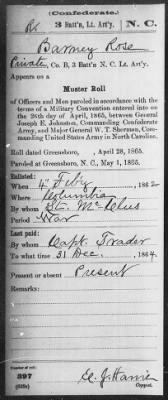 (Confederate.)
R 3 Batt'n, Lt. Art'y. N. C.
Barney Rose
Private, Co. B, 3 Batt'n N. C. Lt. Art'y.
Appears on a
Muster Roll
of Officers and Men paroled in accordance with
the terms of a Military Convention entered into on
the 26th day of April, 1865, between General
Joseph E. Johnston, Commanding Confederate
Army, and Major General W. T. Sherman, Com-
manding United States Army in North Carolina.
Roll dated Greensboro, April 28, 1865.
Paroled at Greensboro, N. C., May 1, 1865.
Enlisted:
When 4" Feby, 1862
Where Columbia
By whom Lt.
Period War
Last paid:
By whom Capt. Trader
To what time 31 Dec., 1864
Present or absent Present
Remarks:
Number of roll:
397
Copyist.